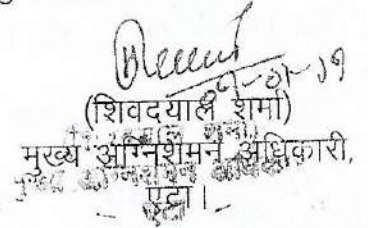 09-01-19
(शिवदयाल शर्मा)
मुख्य अग्निशमन अधिकारी,
एटा।